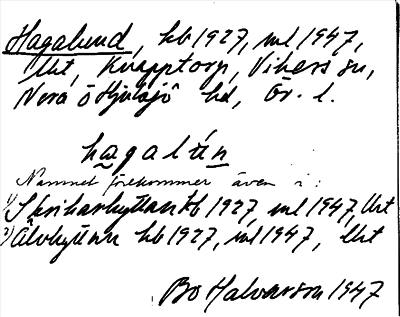 Hagalund, kb 1927, ml 1947,
Uht, Knapptorp, Vikers sn,
Nora o Hjulsjö hd, Ör. l.
hagalún
Namnet förekommer även i:
1) Skrikarhyttan kb 1927, ml 1947, Uht
2) Älvhyttan kb 1927, ml 1947, Uht
Bo Halvarson 1947